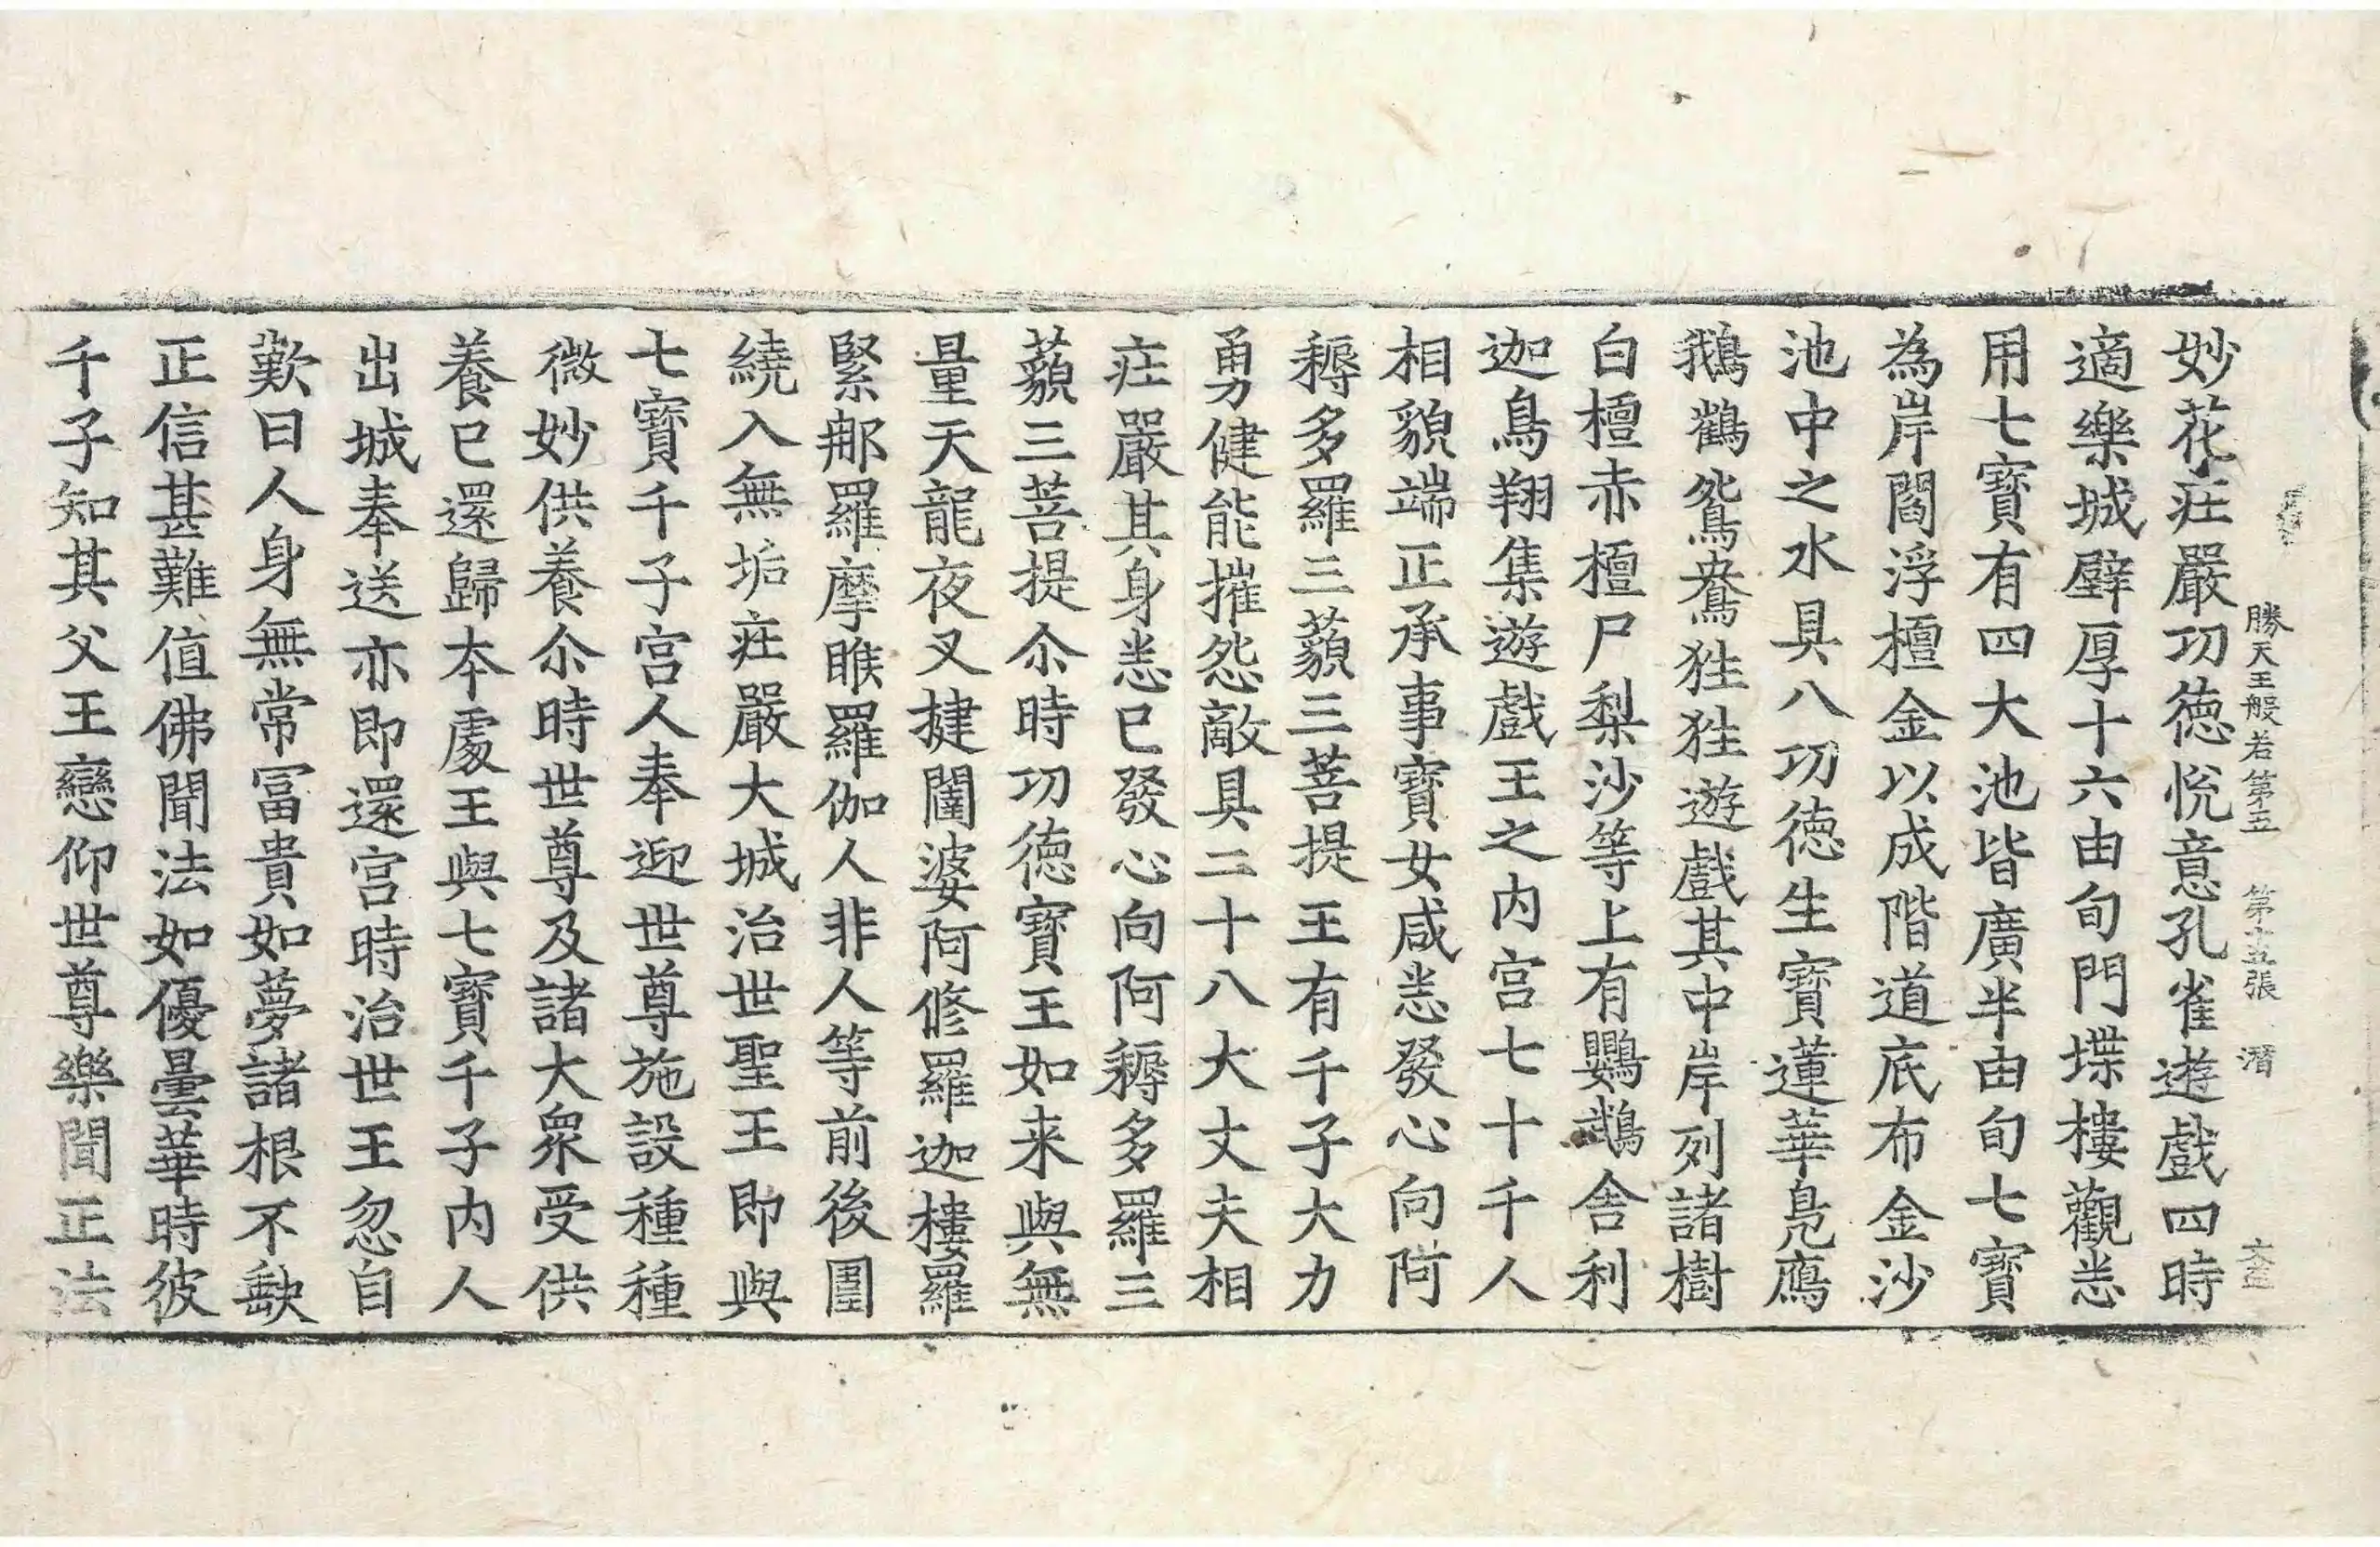 勝天王般若第五　第十五張　潛
妙花疘嚴功德悅意孔雀遊戲四時
適樂城壁厚十六由旬門堞樓觀悉
用七寶有四大池皆廣半由旬七寶
為岸閻浮檀金以成階道底布金沙
池中之水具八功德生寶蓮華鳧鴈
鵝鸖鴛鴦狌狌遊戲其中岸列諸樹
白檀赤檀尸梨沙等上有鸚鵡舍利
迦鳥翔集遊戲王之内宫七十千人
相貌端正承事寶女咸悉發心向阿
耨多羅三藐三菩提王有千子大力
勇健能摧怨敵具二十八大丈夫相
疘嚴其身悉已發心向阿耨多羅三
藐三菩提尒時功德寶王如来與無
量天龍夜叉揵闥婆阿修羅迦樓羅
緊那羅摩睺羅伽人非人等前後圍
繞入無垢疘嚴大城治世聖王即與
七寶千子宫人奉迎世尊施設種種
微妙供養尒時世尊及諸大衆受供
養已還歸本處王與七寶千子内人
出城奉送亦即還宫時治世王忽自
歎曰人身無常冨貴如夢諸根不缺
正信甚難值佛聞法如優曇華時彼
千子知其父王戀仰世尊樂聞正法